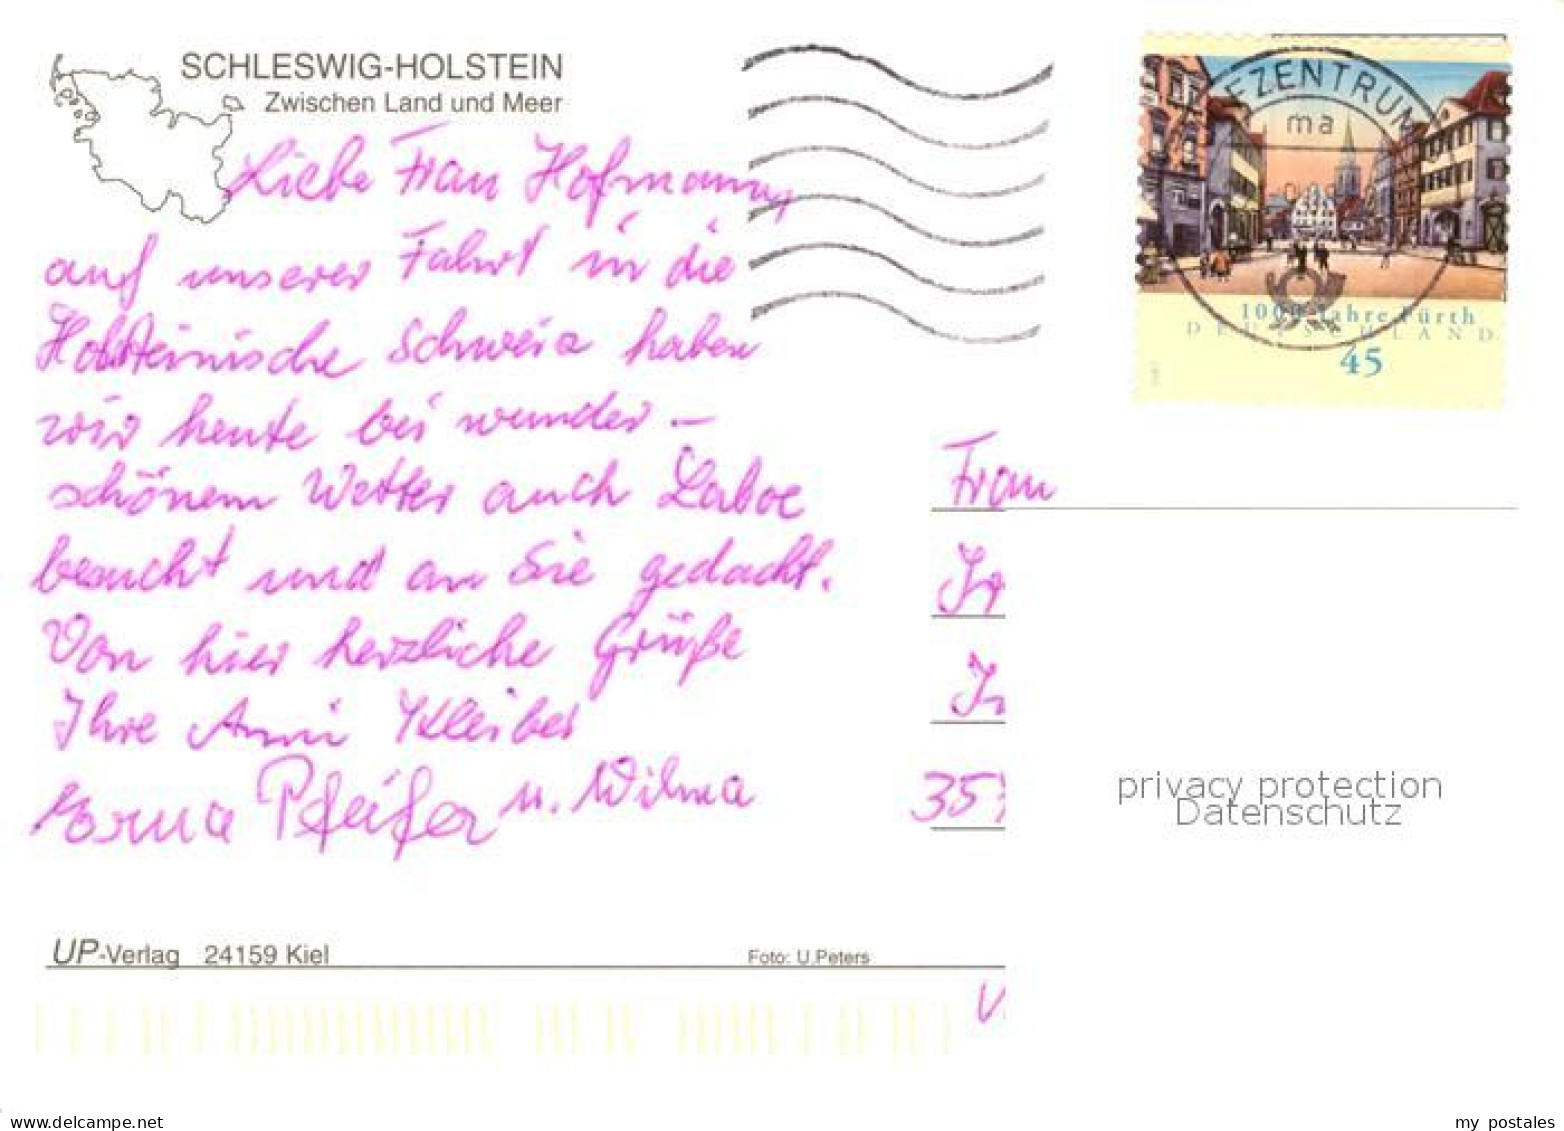 SCHLESWIG-HOLSTEIN
Zwischen Land und Meer
Liebe Frau Hofmann,
auf unserer Fahrt in die
Holsteinische Schweiz haben
wir heute bei wunder-
schönem Wetter auch Laboe
besucht und an Sie gedacht.
Von hier herzliche Grüße
Ihre Anni Kleiber
Erna Pfeifer u. Wilma
UP-Verlag 24159 Kiel
Foto: U.Peters
EZENTRUM
ma
1000 Jahre Fürth
DEUTSCHLAND
45
Frau
35
privacy protection
Datenschutz
www.delcampe.net
my_postales